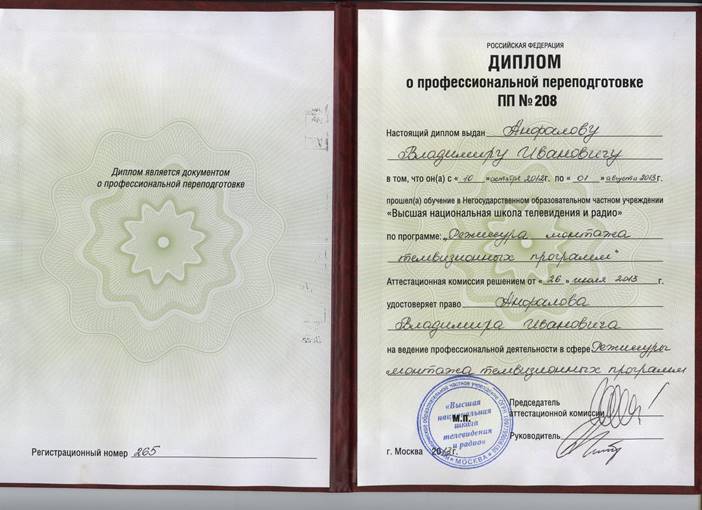 Диплом является документом
о профессиональной переподготовке
Регистрационный номер 265
РОССИЙСКАЯ ФЕДЕРАЦИЯ
ДИПЛОМ
о профессиональной переподготовке
ПП № 208
Настоящий диплом выдан Анфалову
Владимиру Ивановичу
в том, что он(а) с «10» октября 2012г. по «01» августа 2013г.
прошел(а) обучение в Негосударственном образовательном частном учреждении
«Высшая национальная школа телевидения и радио»
по программе: „Режиссура монтажа
телевизионных программ“
Аттестационная комиссия решением от «26» июля 2013 г.
удостоверяет право Анфалова
Владимира Ивановича
на ведение профессиональной деятельности в сфере Режиссуры
монтажа телевизионных программ
Председатель
аттестационной комиссии
Руководитель
М.П.
«Высшая
национальная
школа
телевидения
и радио»
МОСКВА
г. Москва 2013г.